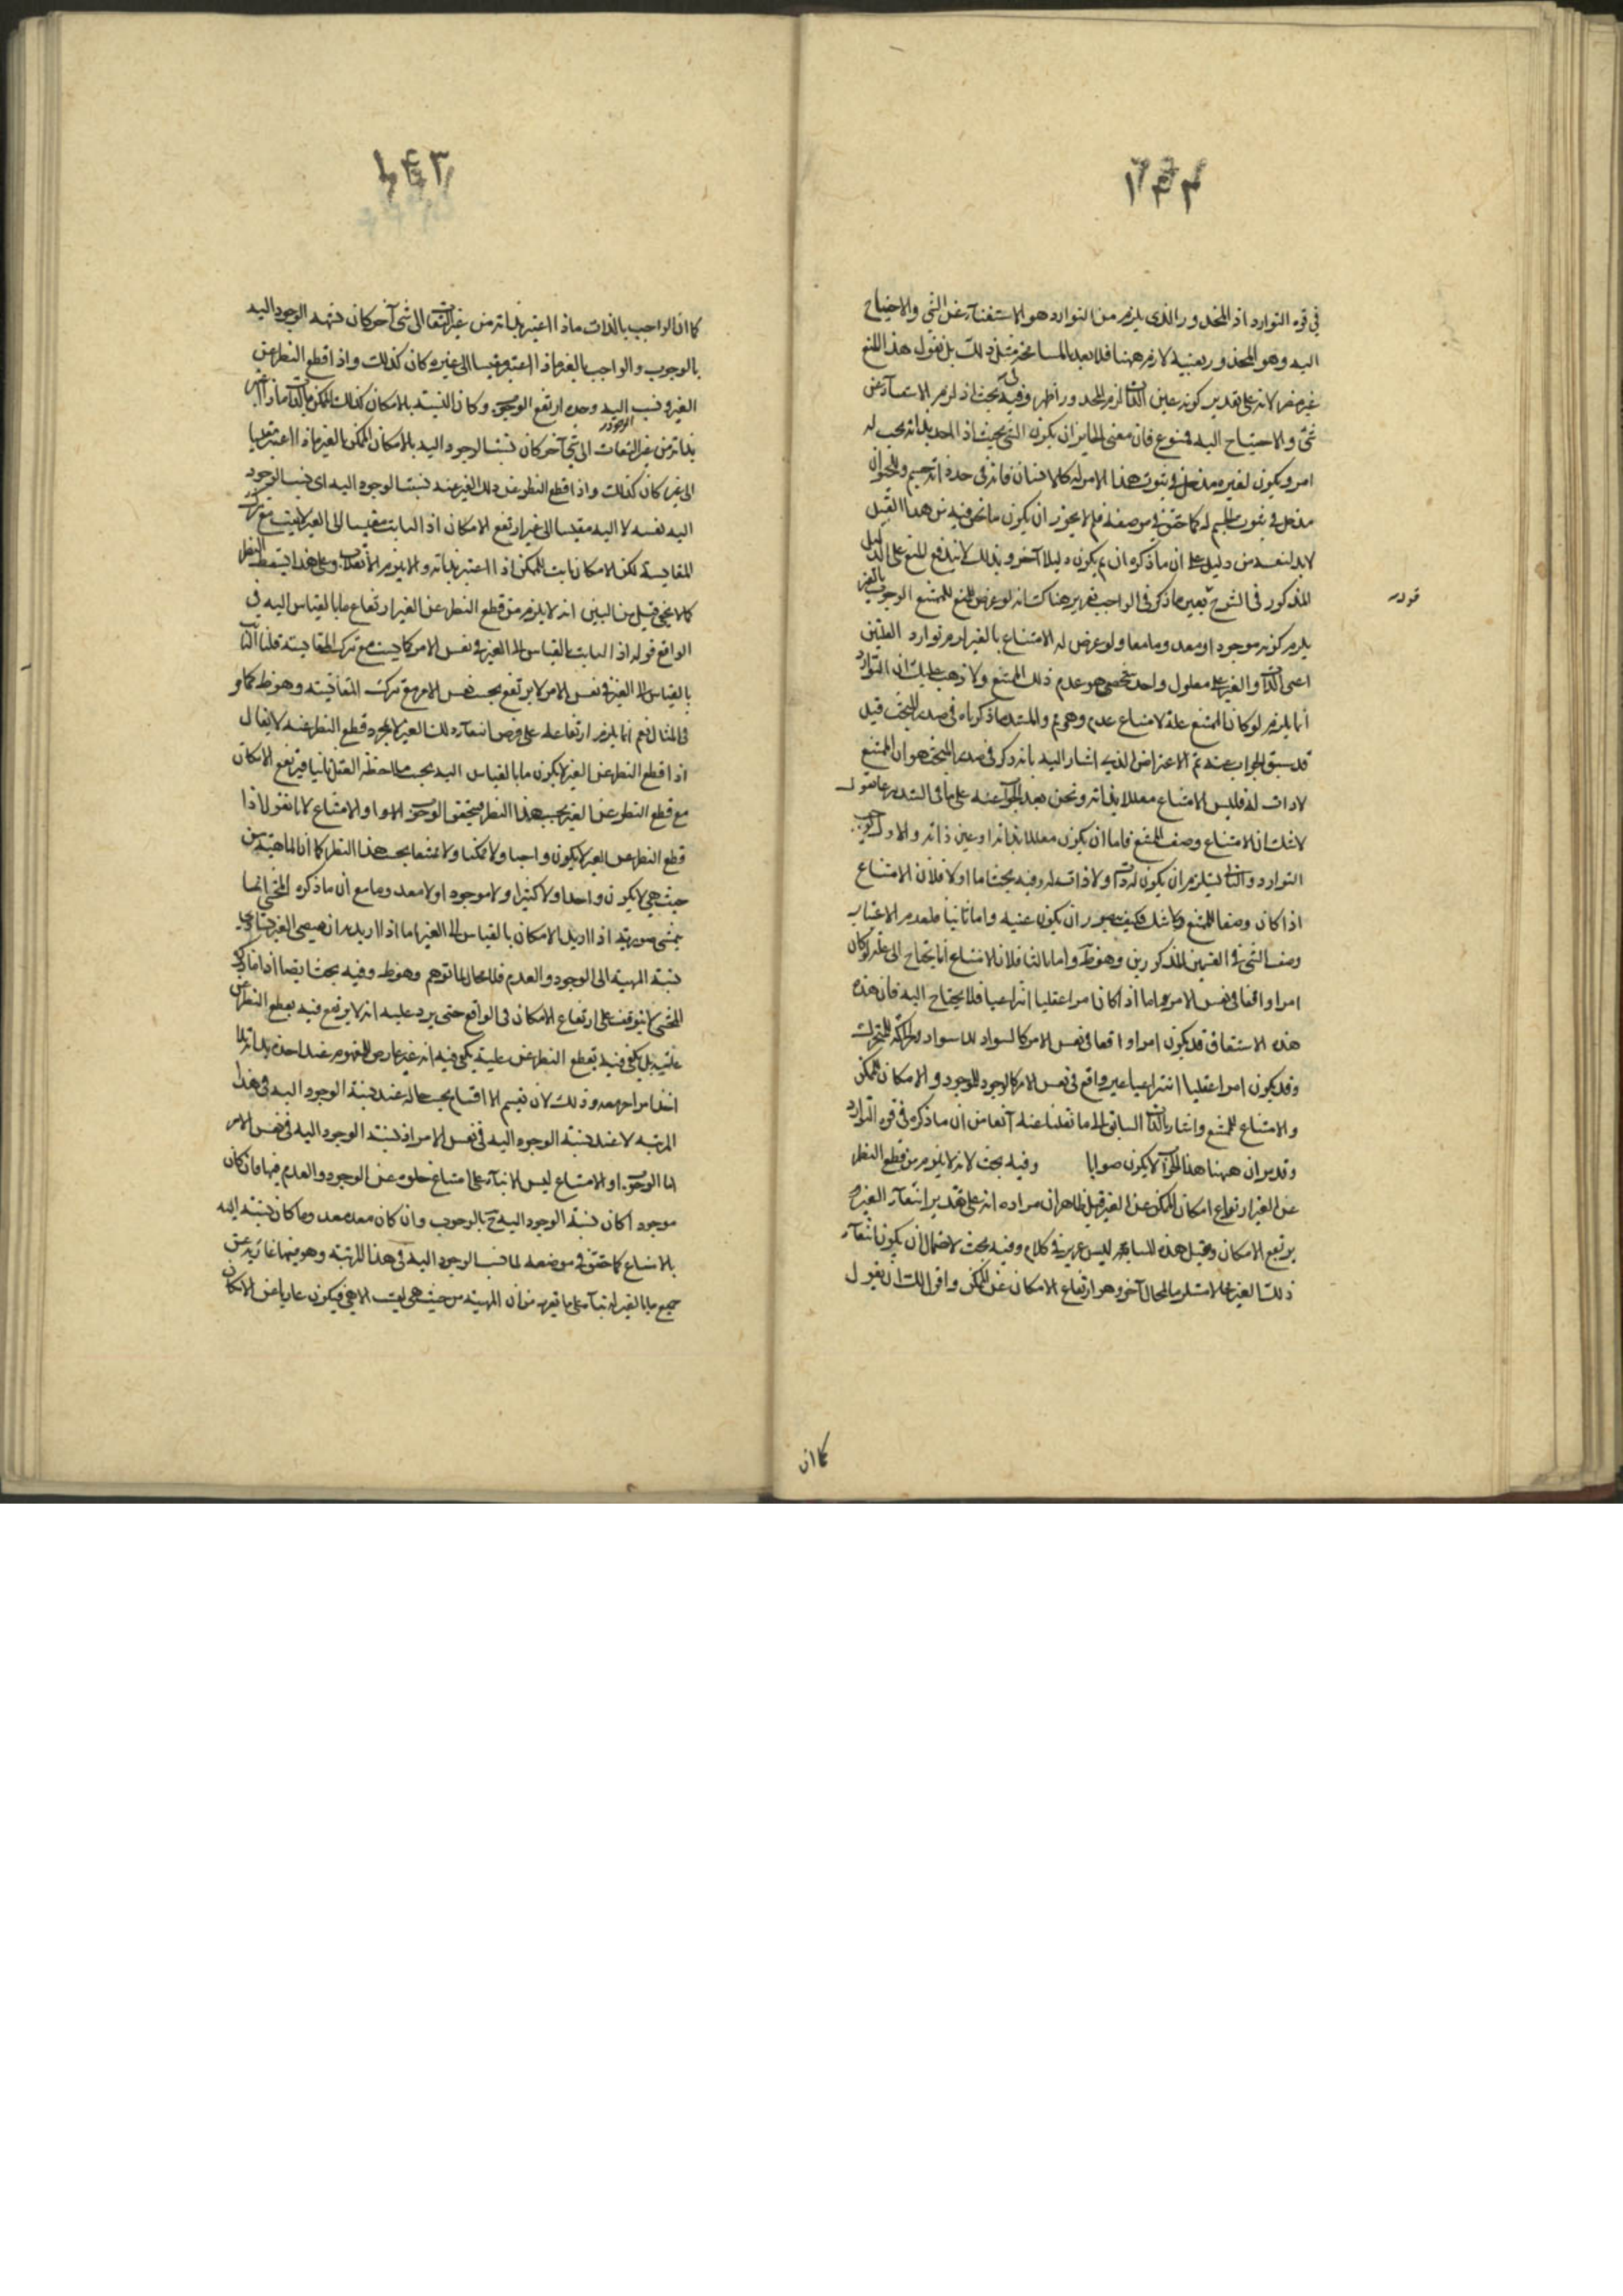 ١٤٢
في قوة التوارد اذ المحذور الذى يلزم من التوارد هو الاستغناء عن الشئ والاحتياج
اليه وهو المحذور بعينه لازم ههنا فلا بعد بالمسامحة فى مثل ذلك بل نقول هذا المنع
غير مضر لانه على تقدير كونه عين الذات لزم المحذور اظهر وفيه بحث اذ لزوم الاستغناء عن
شئ والاحتياج اليه ممنوع فان معنى الجايز ان يكون الشئ بحيث اذا اخذ بذاته يجب له
امر ويكون لغيره مدخل في ثبوت هذا الامر له كالانسان فانه في حد ذاته جسم وللحيوان
مدخل في ثبوت الجسم له كما حقق في موضعه فلم لا يجوز ان يكون ما نحن فيه من هذا القبيل
لابد لنفيه من دليل على ان ما ذكره ان تم يكون دليلا آخر وبذلك لا يندفع المنع على الدليل
المذكور في الشرح بعين ما ذكر في الواجب تقريره هناك انه لو عرض للممتنع الوجوب بالغير
قوله
يلزم كونه موجودا ومعدوما معا ولو عرض له الامتناع بالغير لزم توارد العلتين
اعنى الذات والغير على معلول واحد شخصى هو عدم ذلك الممتنع ولا ذهب عليك ان التوارد
انما يلزم لو كان الممتنع علة لامتناع عدمه وهو تم والمستند ما ذكرناه في صدر المبحث قيل
قد سبق الجواب عنه ثم الاعتراض الذى اشار اليه بانه ذكر في صدر المبحث هو ان الممتنع
لا ذات له فليس الامتناع معللا بذاته ونحن بعد الجواب عنه على ما في السند نقول
لا شك ان الامتناع وصف للممتنع فاما ان يكون معللا بذاته او عين ذاته والاول يوجب
التوارد والثانى يستلزم ان يكون له ذات ولا ذات له وفيه بحث اما اولا فلان الامتناع
اذا كان وصفا للممتنع ولا شك فكيف يجوز ان يكون عينه واما ثانيا فلعدم الاغتناء
وصف الشئ في القسمين المذكورين وهو ظ واما ثالثا فلان الامتناع انما يحتاج الى علة لو كان
امرا واقعا في نفس الامر واما اذا كان امرا عقليا انتزاعيا فلا يحتاج اليه فان هذه
هذه الاشتقاق قد يكون امرا واقعا في نفس الامر كالسواد للاسود والحركة للمتحرك
وقد يكون امرا عقليا انتزاعيا غير واقع في نفس الامر كالوجود للموجود والامكان للممكن
والامتناع للممتنع واشار بالذات السابق الى ما نقلنا عنه آنفا من ان ما ذكره في قوة التوارد
وقد مر ان ههنا هذا الجواب لا يكون صوابا وفيه بحث لانه لا يلزم من قطع النظر
عن الغير ارتفاع امكان الممكن عن الغير قيل ظاهر ان مراده انه على تقدير انتفاء الغير
يرتفع الامكان ومثل هذه المسامحة ليس عزيز في كلام وفيه بحث لاحتمال ان يكون انتفاء
ذلك الغير محالا مستلزما لمحال آخر وهو ارتفاع الامكان عن الممكن واقول لك ان تقول
كما ان
١٤٣
كما ان الواجب بالذات ما اذا اعتبر بذاته من غير التفات الى شئ آخر كان نسبة الوجود اليه
بالوجوب والواجب بالغير ما اذا اعتبر مقيسا الى غيره كان كذلك واذا قطع النظر عن
الغير ونسب اليه وحده ارتفع الوجوب وكان النسبة بالامكان كذلك الممكن بالذات ما اذا اعتبر
بذاته من غير التفات الى شئ آخر كان نسبة الوجود اليه بالامكان والممكن بالغير ما اذا اعتبر مقيسا
الى غيره كان كذلك واذا قطع النظر عن ذلك الغير عند نسبة الوجود اليه اى نسب الوجود
اليه نفسه لا اليه مقيسا الى غيره ارتفع الامكان اذ الثابت مقيسا الى الغير لا يثبت مع ترك
المقايسة لكن الامكان ثابت للممكن اذا اعتبر بذاته والا يلزم الانقلاب وعلى هذا يسقط النظر
كما لا يخفى قيل من البين انه لا يلزم من قطع النظر عن الغير ارتفاع ما بالقياس اليه في
الواقع قوله اذ الثابت بالقياس الى الغير في نفس الامر لا يثبت مع ترك المقايسة قلنا الثابت
بالقياس الى الغير في نفس الامر لا يرتفع بحسب نفس الامر مع ترك المقايسة وهو ظ كما
في المثال نعم انما يلزم ارتفاعه على فرض انتفاء ذلك الغير لا بمجرد قطع النظر عنه لا يقال
اذا قطع النظر عن الغير لا يكون ما بالقياس اليه بحسب ملاحظة العقل ثابتا فيرتفع الامكان
مع قطع النظر عن الغير بحسب هذا النظر فيتحقق الوجوب او الامتناع لانا نقول اذا
قطع النظر عن الغير لا يكون واجبا ولا ممكنا ولا ممتنعا بحسب هذا النظر كما ان الماهية من
حيث هي لا يكون واحدا ولا كثيرا ولا موجودا ولا معدوما مع ان ما ذكره المحشى انما
يتمشى صورته اذا اريد بالامكان بالقياس الى الغير اما اذا اريد به ان يقتضى الغير تساوى
نسبة المهية الى الوجود والعدم فلا مجال لما توهم وهو ظ وفيه بحث ايضا اذ ما ذكره
المحشى لا يتوقف على ارتفاع الامكان في الواقع حتى يرد عليه انه لا يرتفع فيه بقطع النظر عن
علته بل يكفى فيه بقطع النظر عن علته يكفى فيه انه غير عارض للمفهوم عند اخذه بذاته بلا
اخذ امر آخر معه وذلك لان تقسيم الاقسام بحسب حاله عند نسبة الوجود اليه في هذا
المرتبه لا عند نسبة الوجود اليه في نفس الامر اذ نسبة الوجود اليه في نفس الامر
اما الوجوب او الامتناع ليس الا بناء على امتناع خلوه عن الوجود والعدم فيها فان كان
موجودا كان نسبة الوجود اليه ح بالوجوب وان كان معدوما كان نسبة اليه
بالامتناع كما حقق في موضعه لما نسب الوجود اليه في هذا المرتبة وهو فيها عارية عن
جميع ما بالغير له بناء على ما تقرر من ان المهية من حيث هي ليست الا هي فيكون عاريا عن الامكان